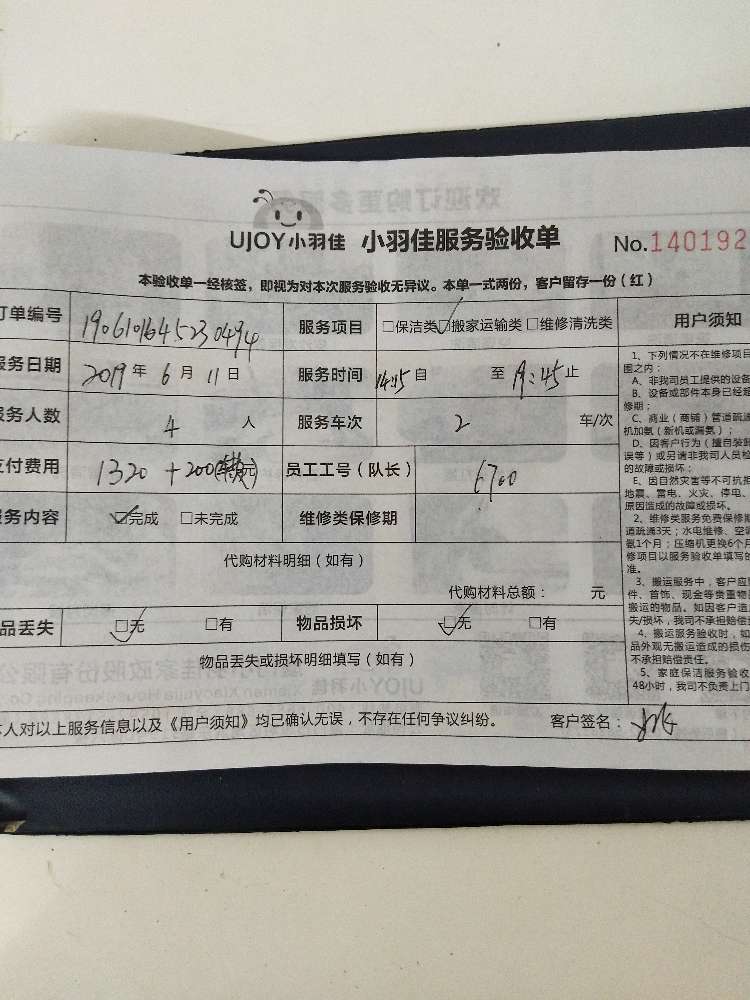 UJOY小羽佳 小羽佳服务验收单 No.140192
本验收单一经核签，即视为对本次服务验收无异议。本单一式两份，客户留存一份（红）
订单编号 1906101645230494 服务项目 □保洁类☑搬家运输类□维修清洗类
服务日期 2019年6月11日 服务时间 14:45自 至19:45止
服务人数 4人 服务车次 2 车/次
支付费用 1320+200 员工工号（队长） 6700
服务内容 ☑完成 □未完成 维修类保修期
代购材料明细（如有）
代购材料总额： 元
品丢失 ☑无 □有 物品损坏 ☑无 □有
物品丢失或损坏明细填写（如有）
本人对以上服务信息以及《用户须知》均已确认无误，不存在任何争议纠纷。 客户签名：
用户须知
1、下列情况不在维修项目
围之内：
A、非我司员工提供的设备
B、设备或部件本身已经超
修期；
C、商业（商铺）管道疏通
机加氨（新机或漏氨）；
D、因客户行为（擅自装卸
误等）或另请非我司人员检
的故障或损坏；
E、因自然灾害等不可抗拒
地震、雷电、火灾、停电、
原因造成的故障或损坏。
2、维修类服务免费保修期
道疏通3天；水电维修、空调
氨1个月；压缩机更换6个月
修项目以服务验收单填写的
准。
3、搬运服务中，客户应
件、首饰、现金等贵重物品
搬运的物品。如因客户造
失/损坏，我司不承担赔偿责
4、搬运服务验收时，如
品外观无搬运造成的损伤
不承担赔偿责任。
5、家庭保洁服务验收
48小时，我司不负责上门